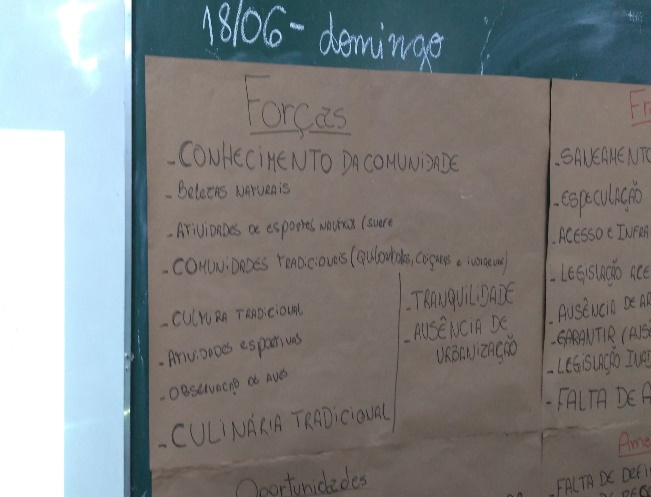 18/06 - domingo
Forças
- CONHECIMENTO DA COMUNIDADE
- Belezas NATURAIS
- ATIVIDADES de esportes NAUTICOS (SURF
- COMUNIDADES TRADICIONAIS (Quilombolas, Caiçaras e indígenas)
- CULTURA TRADICIONAL
- Atividades esportivas
- OBSERVAÇÃO de AVES
- CULINÁRIA TRADICIONAL
- TRANQUILIDADE
- AUSÊNCIA DE
URBANIZAÇÃO
Oportunidades
Fr
- SANEAMENTO
- ESPECULAÇÃO
- ACESSO e INFRA
- LEGISLAÇÃO ACE
- AUSÊNCIA DE AR
- GARANTIR (AUS
- LEGISLAÇÃO INAD
- FALTA DE A
Ame
- FALTA DE DEFI